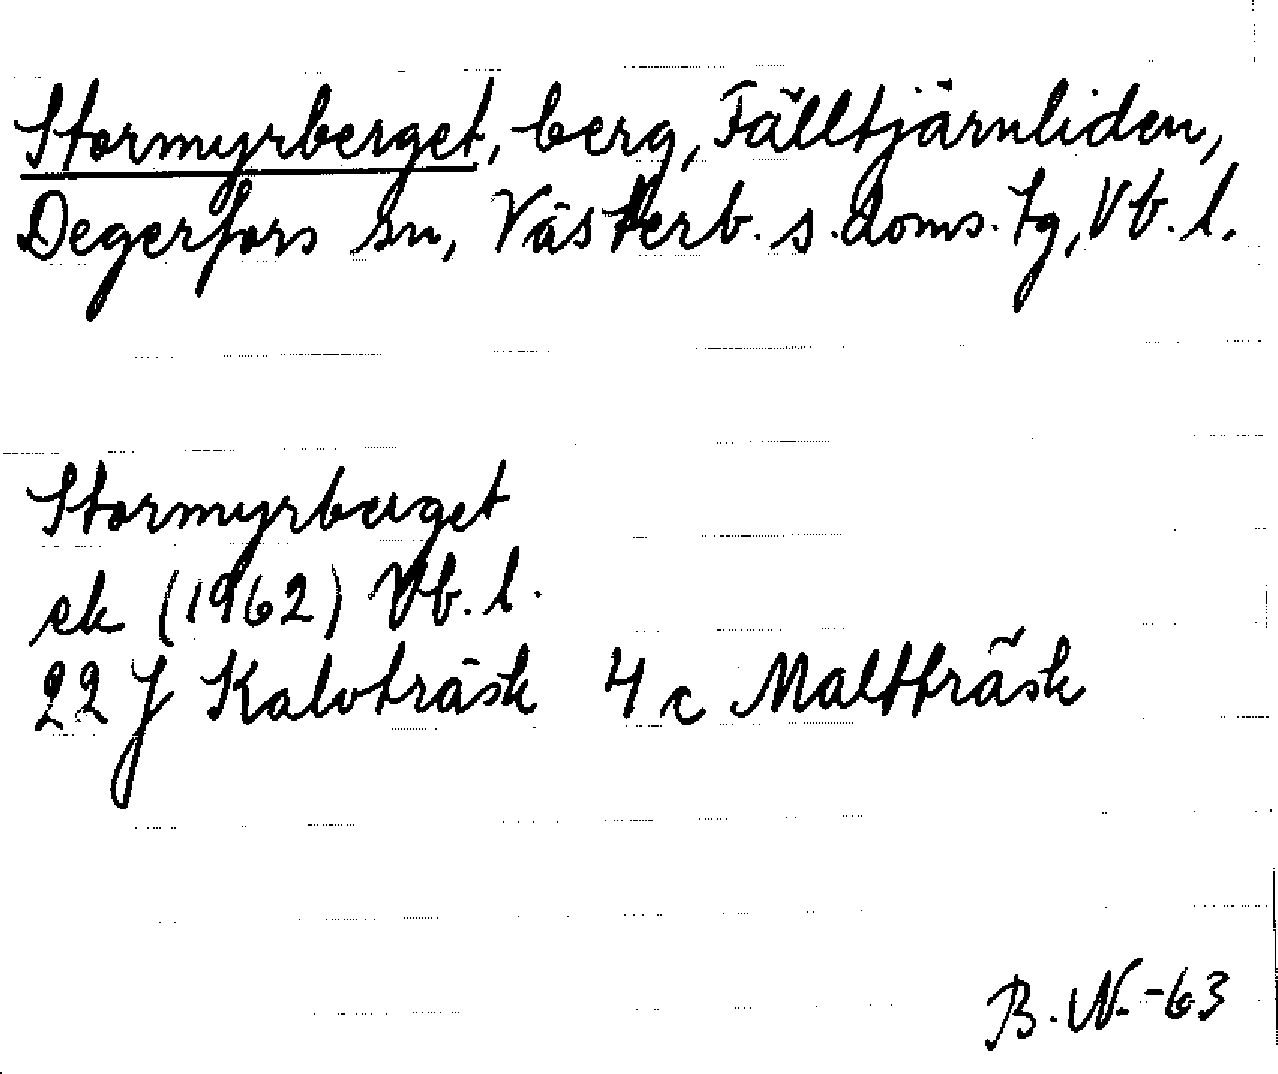 Stormyrberget, berg, Fälltjärnliden,
Degerfors sn, Västerb. s. doms. tg, Vb. l.
Stormyrberget
ek (1962) Vb. l.
22 J Kalvträsk 4 c Maltträsk
B. N. -63